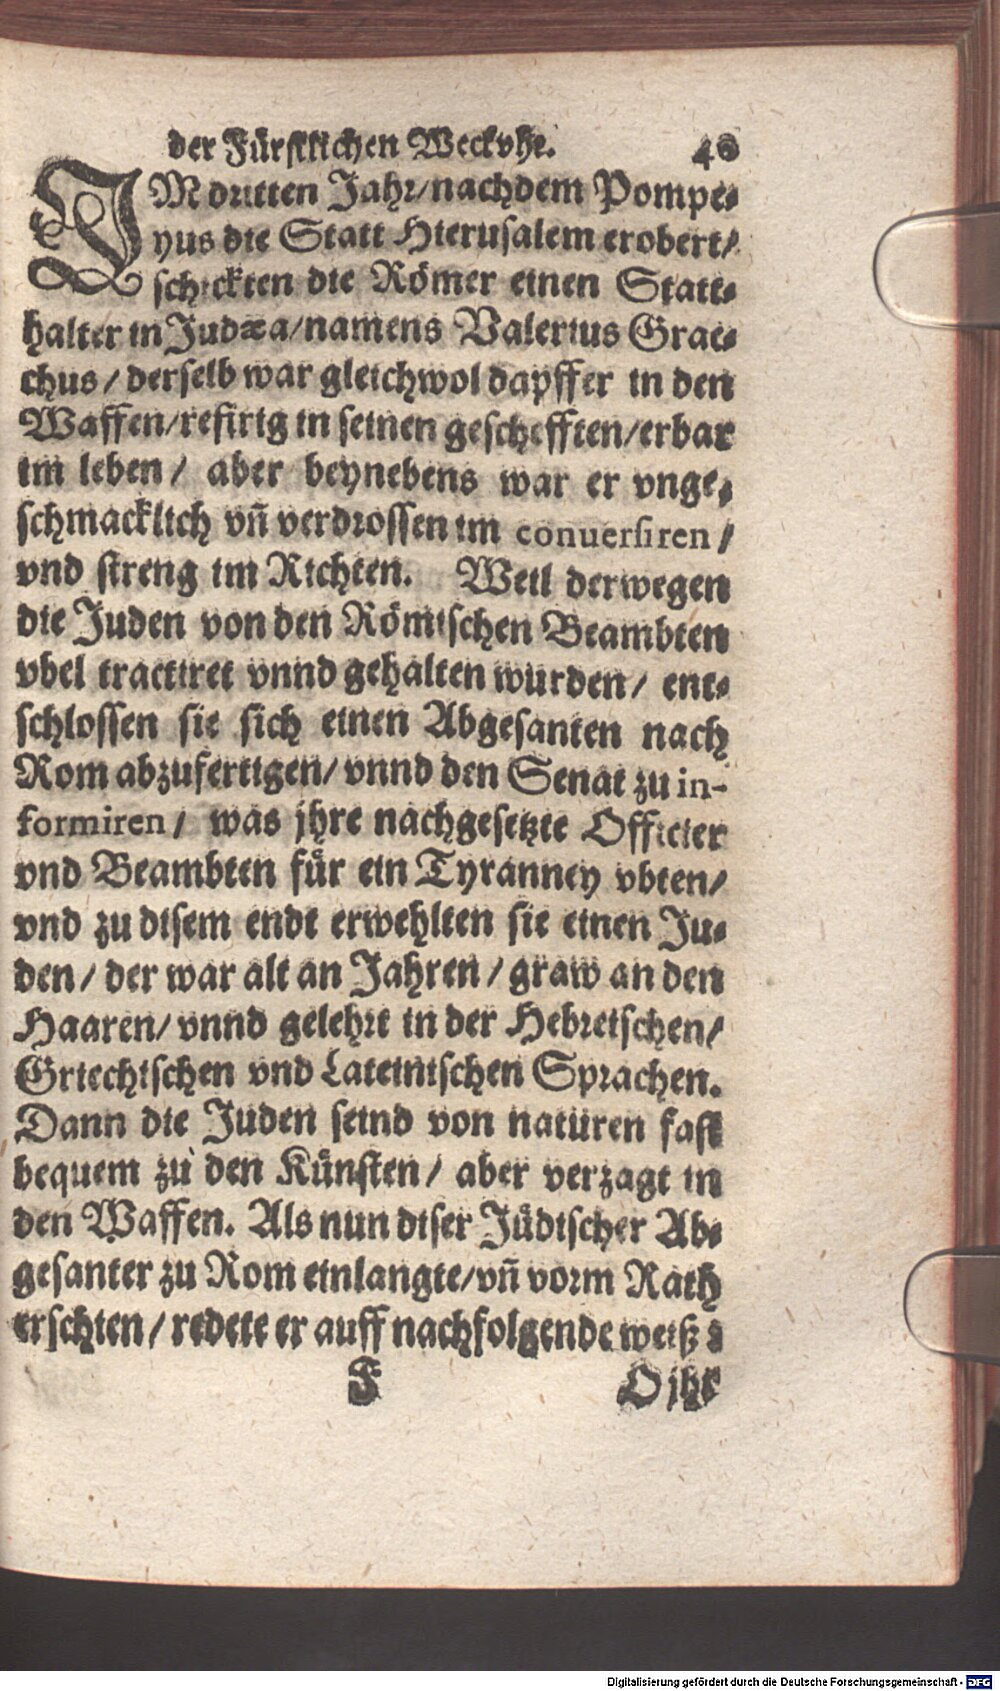 der Fürstlichen Weckvhr. 40
IM dritten Jahr/nachdem Pompe-
yus die Statt Hierusalem erobert/
schickten die Römer einen Statt-
halter in Judæa/namens Valerius Grac-
chus/derselb war gleichwol dapffer in den
Waffen/resirig in seinen geschefften/erbar
im leben/ aber beynebens war er vnge-
schmacklich vñ verdrossen im conuersiren/
vnd streng im Richten. Weil derwegen
die Juden von den Römischen Beambten
vbel tractiret vnnd gehalten wurden/ ent-
schlossen sie sich einen Abgesanten nach
Rom abzufertigen/vnnd den Senat zu in-
formiren/ was jhre nachgesetzte Officier
vnd Beambten für ein Tyranney vbten/
vnd zu disem ende erwehlten sie einen Ju-
den/der war alt an Jahren/graw an den
Haaren/vnnd gelehrt in der Hebreischen/
Griechischen vnd Lateinischen Sprachen.
Dann die Juden seind von naturen fast
bequem zu den Künsten/ aber verzagt in
den Waffen. Als nun diser Jüdischer Ab-
gesanter zu Rom einlangte/vñ vorm Rath
erschien/redete er auff nachfolgende weiß:
F O jhr
Digitalisierung gefördert durch die Deutsche Forschungsgemeinschaft - DFG